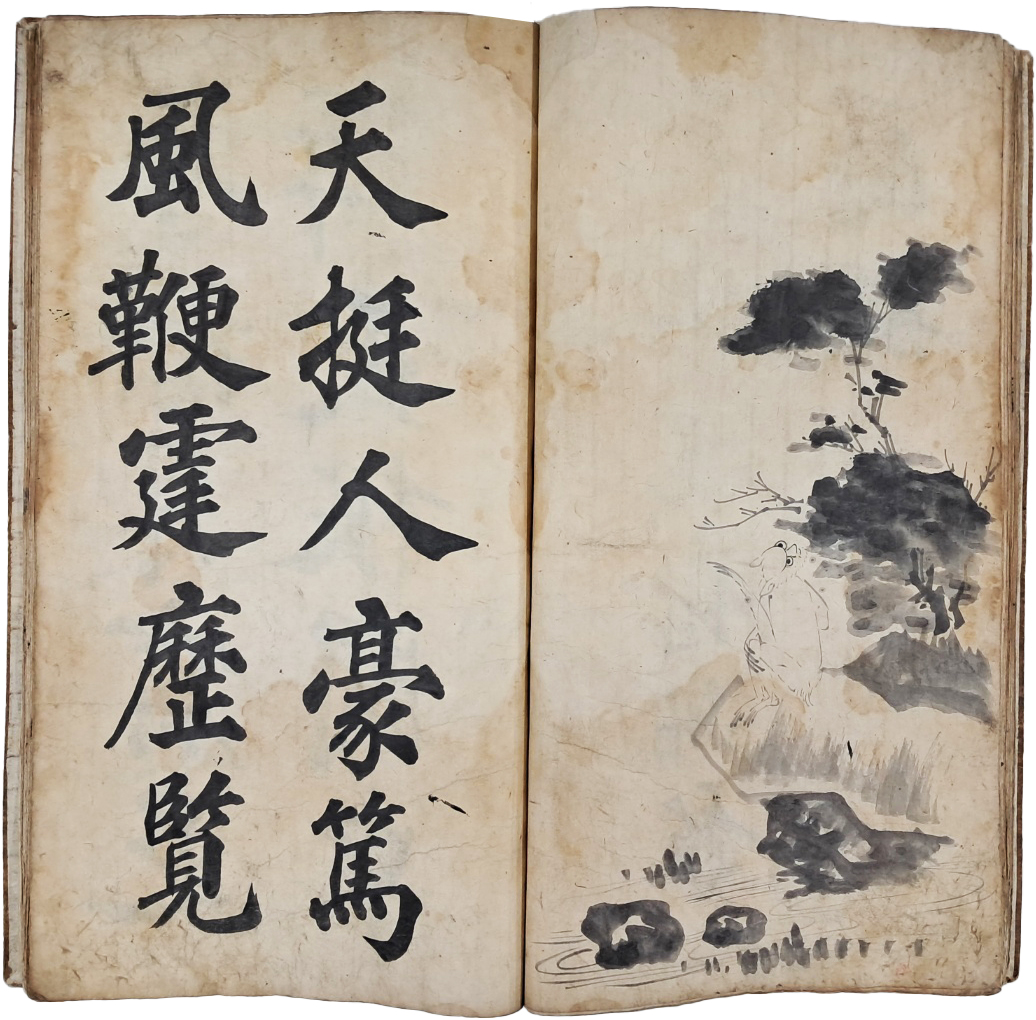 天挺人豪篤
風鞭霆歷覽